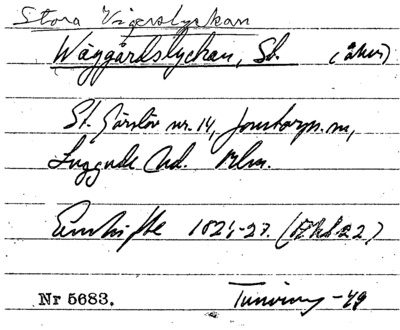 Stora Vägerslyckan
Wäggårdslyckan, St. (åker)
St. Görslöv nr. 14, Jonstorps sn,
Luggude hd. Mlm.
Enskifte 1824-27. (Bkt 22)
Nr 5683. Tuneving -49